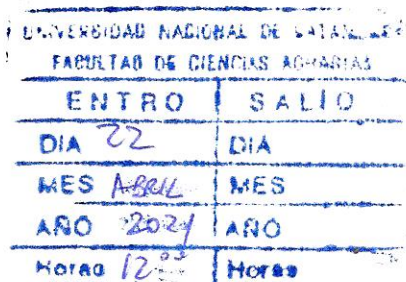 UNIVERSIDAD NACIONAL DE CATAMARCA
FACULTAD DE CIENCIAS AGRARIAS
ENTRO SALIO
DIA 22 DIA
MES ABRIL MES
AÑO 2021 AÑO
Horas 12 Horas